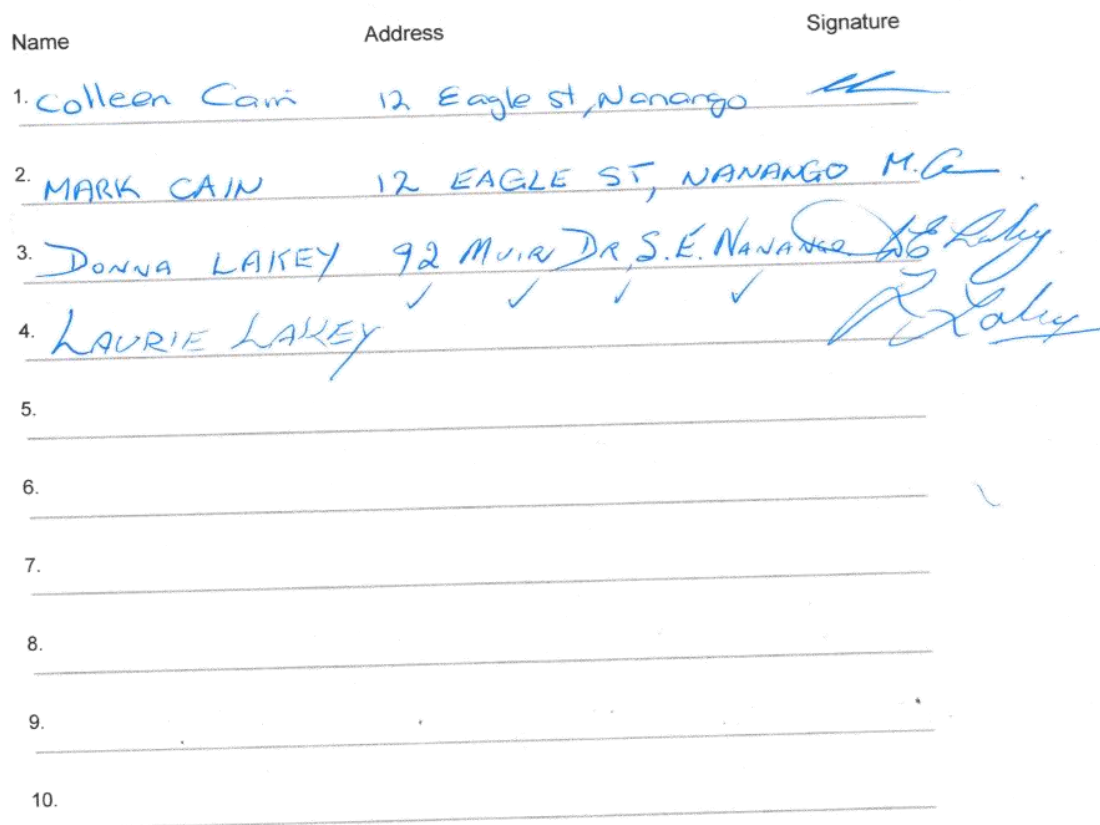 Name Address Signature
1. Colleen Cain 12 Eagle st, Nanango
2. MARK CAIN 12 EAGLE ST, NANANGO M.
3. DONNA LAKEY 92 MUIR DR, S.E. NANANGO DE Lakey
4. LAURIE LAKEY ✓ ✓ ✓ ✓ L Lakey
5.
6.
7.
8.
9.
10.